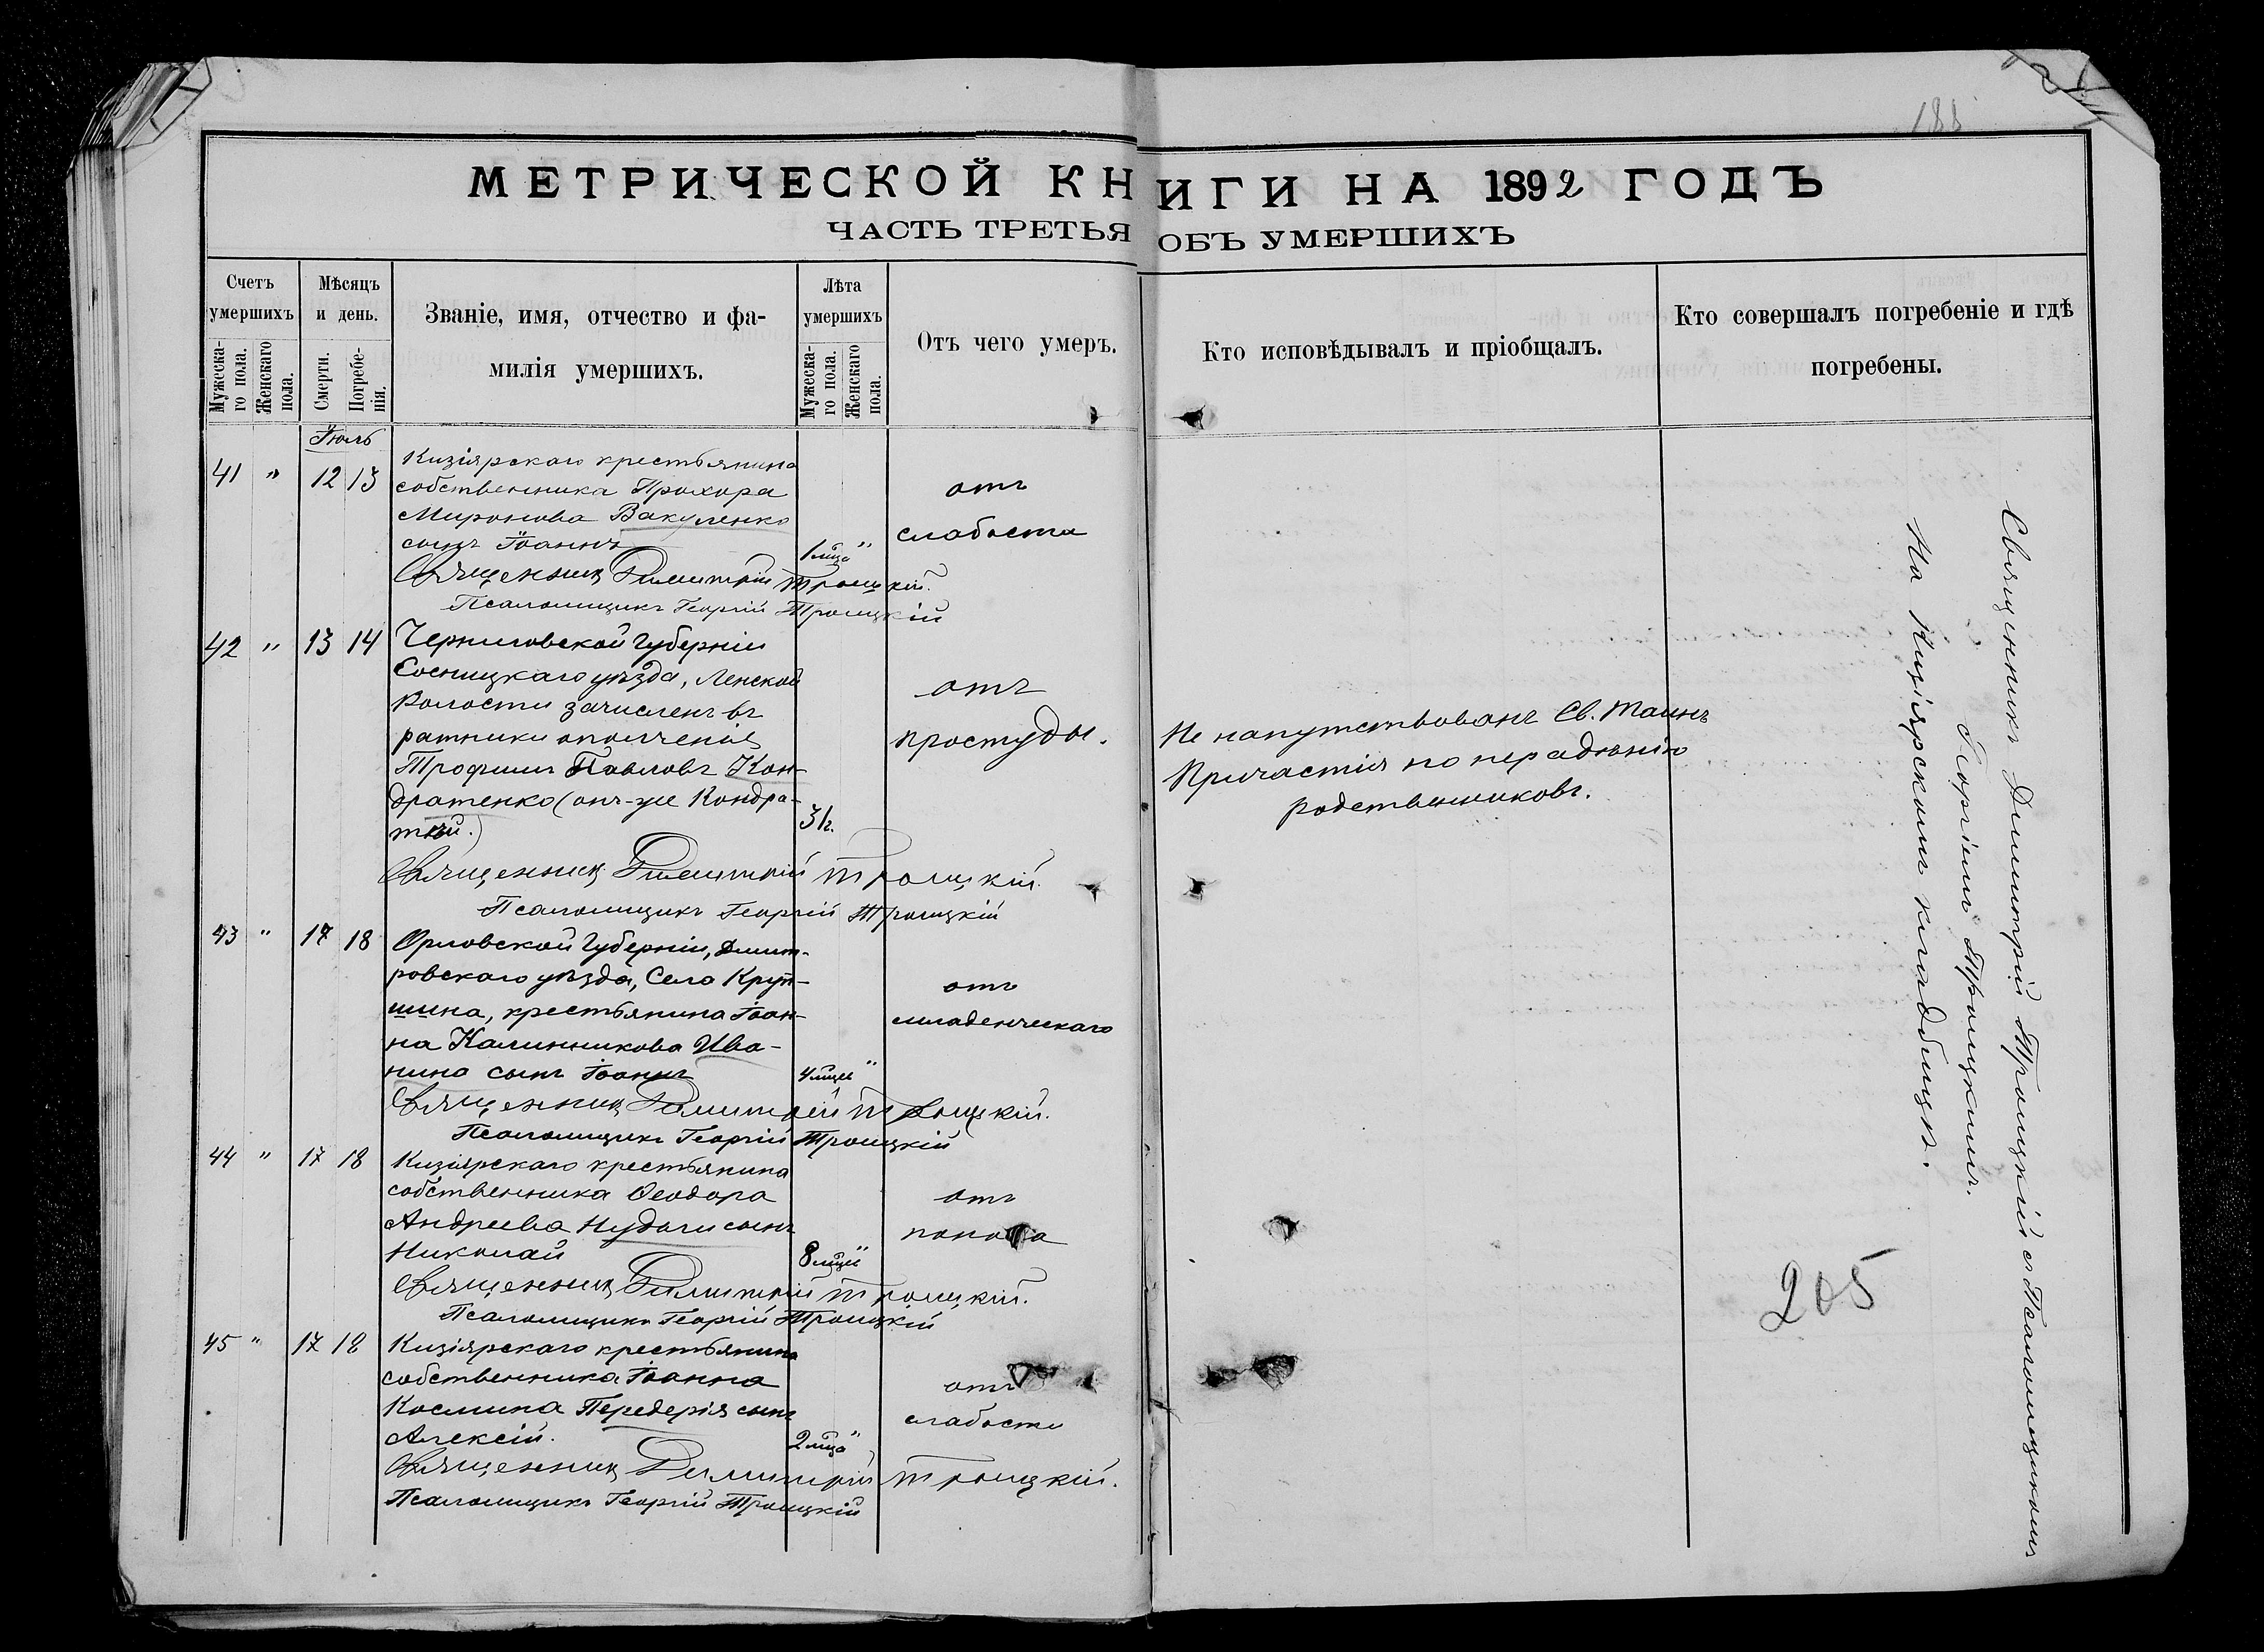 188
МЕТРИЧЕСКОЙ КНИГИ НА 1892 ГОДЪ
ЧАСТЬ ТРЕТЬЯ ОБЪ УМЕРШИХЪ
Счетъ умершихъ
Мужеска-го пола.
Женскаго пола.
Мѣсяцъ и день.
Смерти.
Погребе-нія.
Званіе, имя, отчество и фа-
милія умершихъ.
Лѣта умершихъ
Мужеска-го пола.
Женскаго пола.
Отъ чего умеръ.
Кто исповѣдывалъ и пріобщалъ.
Кто совершалъ погребеніе и гдѣ
погребены.
Іюль
41 " 12 13 Кизіярскаго крестьянина
собственника Прохора
Миронова Вакуленко
сынъ Іоаннъ
1 мца "
отъ
слабости
Священникъ Димитрій Троицкій.
Псаломщикъ Георгій Троицкій
42 " 13 14 Черниговской Губерніи
Сосницкаго уѣзда, Менской
Волости зачисленъ въ
ратники ополченія
Трофимъ Павловъ Кон-
дратенко (онъ-же Кондра-
тій.)
31 г.
отъ
простуды.
Не напутствованъ Св. Таинъ
Причастія по нерадѣнію
родственниковъ.
Священникъ Димитрій Троицкій.
Псаломщикъ Георгій Троицкій
43 " 17 18 Орловской Губерніи, Дмит-
ровскаго уѣзда, Села Круп-
шина, крестьянина Іоан-
на Калинникова Ива-
нина сынъ Іоаннъ
4 мцев "
отъ
младенческаго
Священникъ Димитрій Троицкій.
Псаломщикъ Георгій Троицкій
44 " 17 18 Кизіярскаго крестьянина
собственника Ѳеодора
Андреева Нудьги сынъ
Николай
8 мцев "
отъ
поноса
Священникъ Димитрій Троицкій.
Псаломщикъ Георгій Троицкій
45 " 17 18 Кизіярскаго крестьянина
собственника Іоанна
Космина Передерія сынъ
Алексій.
2 мца "
отъ
слабости
Священникъ Димитрій Троицкій.
Псаломщикъ Георгій Троицкій
Священникъ Димитрій Троицкій съ Псаломщикомъ
Георгіемъ Троицкимъ.
На Кизіярскомъ кладбищѣ.
205